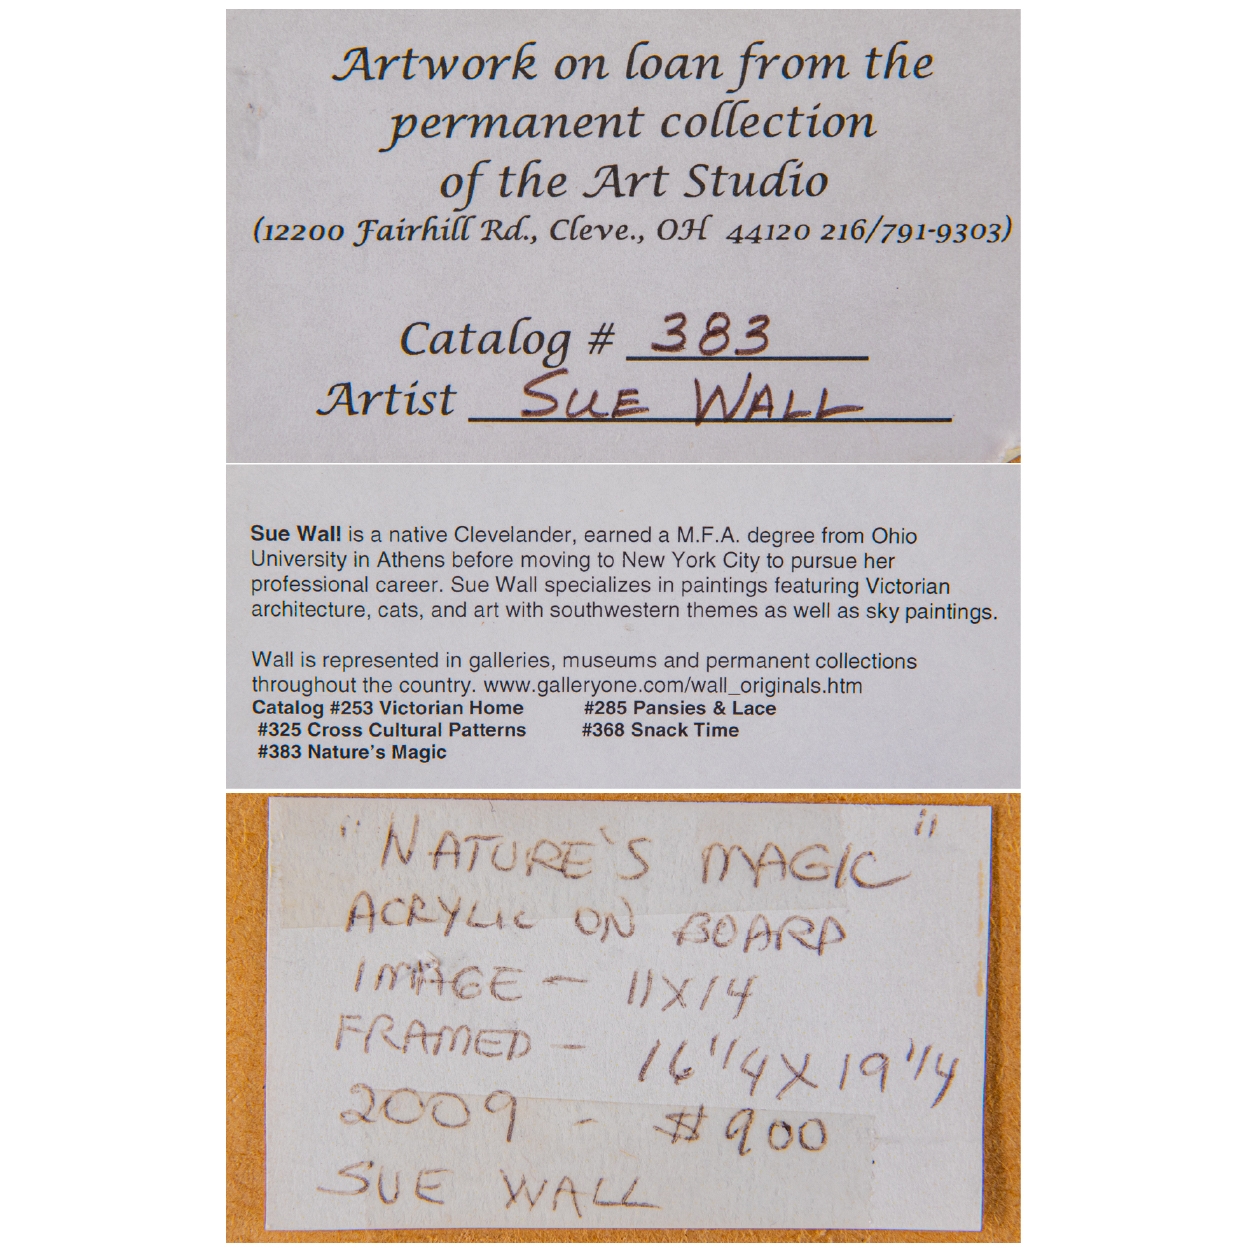 Artwork on loan from the
permanent collection
of the Art Studio
(12200 Fairhill Rd., Cleve., OH 44120 216/791-9303)
Catalog # 383
Artist SUE WALL
Sue Wall is a native Clevelander, earned a M.F.A. degree from Ohio
University in Athens before moving to New York City to pursue her
professional career. Sue Wall specializes in paintings featuring Victorian
architecture, cats, and art with southwestern themes as well as sky paintings.
Wall is represented in galleries, museums and permanent collections
throughout the country. www.galleryone.com/wall_originals.htm
Catalog #253 Victorian Home #285 Pansies & Lace
#325 Cross Cultural Patterns #368 Snack Time
#383 Nature's Magic
"NATURE'S MAGIC"
ACRYLIC ON BOARD
IMAGE - 11X14
FRAMED - 16 1/4 X 19 1/4
2009 - $900
SUE WALL